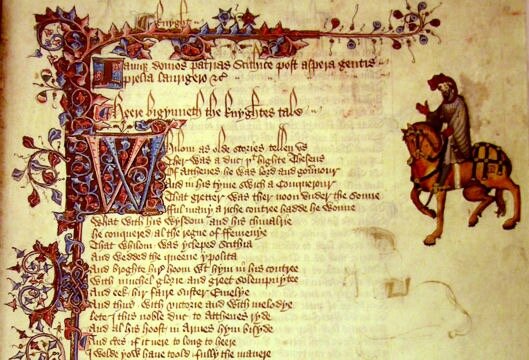 Knyght
Iamque domos patrias Scithice post aspera gentis
prelia laurigero &c
Heere bigynneth the knyghtes tale
Whilom as olde stories tellen us
Ther was a duc þt highte Theseus
Of Atthenes he was lord and gouernour
And in his tyme swich a Conquerour
That gretter was ther noon under the Sonne
fful many a riche contree hadde he wonne
What with his wysdom and his chiualrie
he conquered al the regne of ffemenye
That whilom was ycleped Scithia
And wedded the queene ypolita
And broghte hir hoom with hym in his contree
With muchel glorie and greet solempnytee
And eek hir faire suster Emelye
And thus with victorie and with melodye
lete I this noble duc to Atthenes ryde
And al his hoost in Armes hym bisyde
And certes if it nere to long to heere
I wolde yow haue toold fully the manere